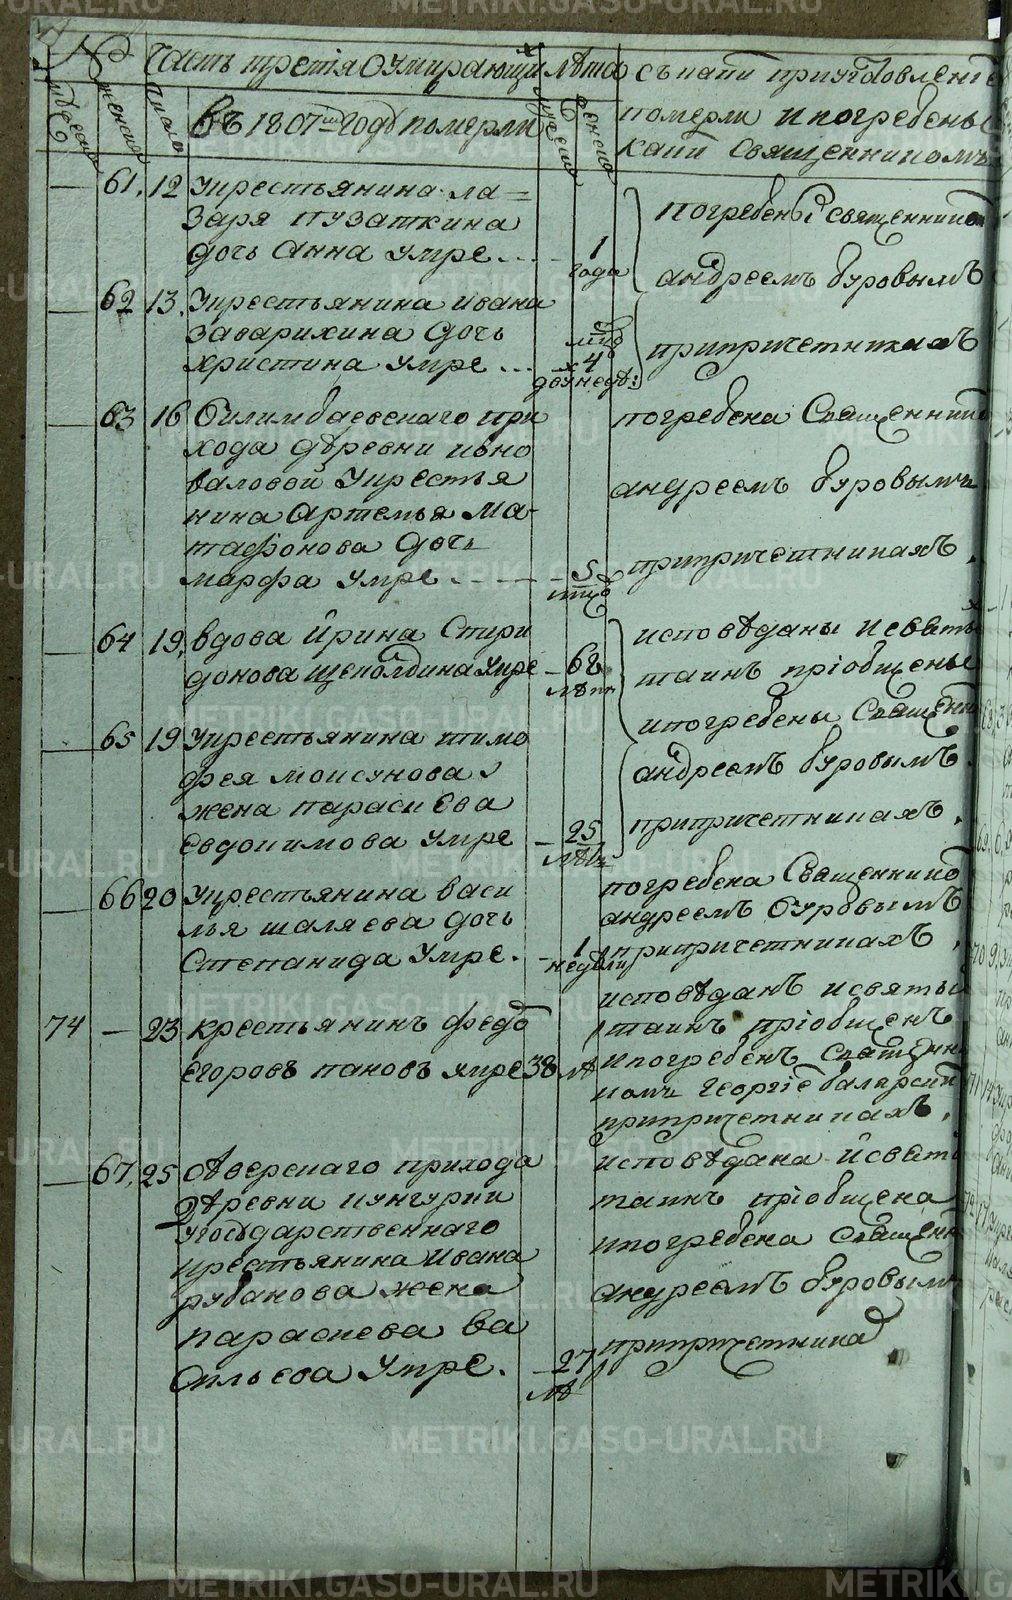 № Часть третiя О умирающихъ Лѣта съ каки приуготовленi
мужеска женска число Въ 1807мъ Годѣ померли мужеска женска померли и погребены
каки Священникомъ
61. 12 У крестьянина ла=
заря пузаткина
дочь Анна умре... 1
года
погребены Священнико
андреемъ буровымъ
при причетникахъ
62 13. У крестьянина ивана
Заварихина дочь
христина умре...
мцо
4
недѣ:
63 16 Билимбаевскаго при
хода деревни коно
валовой у крестья
нина Артемья Ма-
тафонова дочь
марфа умре. --- 5
мцо
погребена Священнико
андреемъ буровымъ
при причетникахъ.
64 19. вдова Ирина Спири
донова Щеколдина умре - 62
лѣтъ
исповѣданы и святы
таинъ прiобщены
и погребены Священн
андреемъ буровымъ
при причетникахъ.
65 19 У крестьянина тимо
фея моисунова
жена параскева
Евдокимова умре - 25
лѣтъ
66 20 У крестьянина васи
лья шаляева дочь
Степанида умре. - 1
недѣли
погребена Священнико
андреемъ буровымъ
при причетникахъ.
74 — 23 крестьянинъ федо
Егоровъ пановъ умре 38 лѣ
исповѣданъ и святы
таинъ прiобщенъ
и погребенъ Священни
комъ Георгiе
при причетникахъ.
67. 25 Сѣверскаго прихода
Деревни кунгурки
у государственнаго
крестьянина ивана
рубанова жена
параскева Ва
сильева умре. - 27
лѣ
исповѣдана и святы
таинъ прiобщена
и погребена Священн
андреемъ буровымъ
при причетника
METRIKI.GASO-URAL.RU